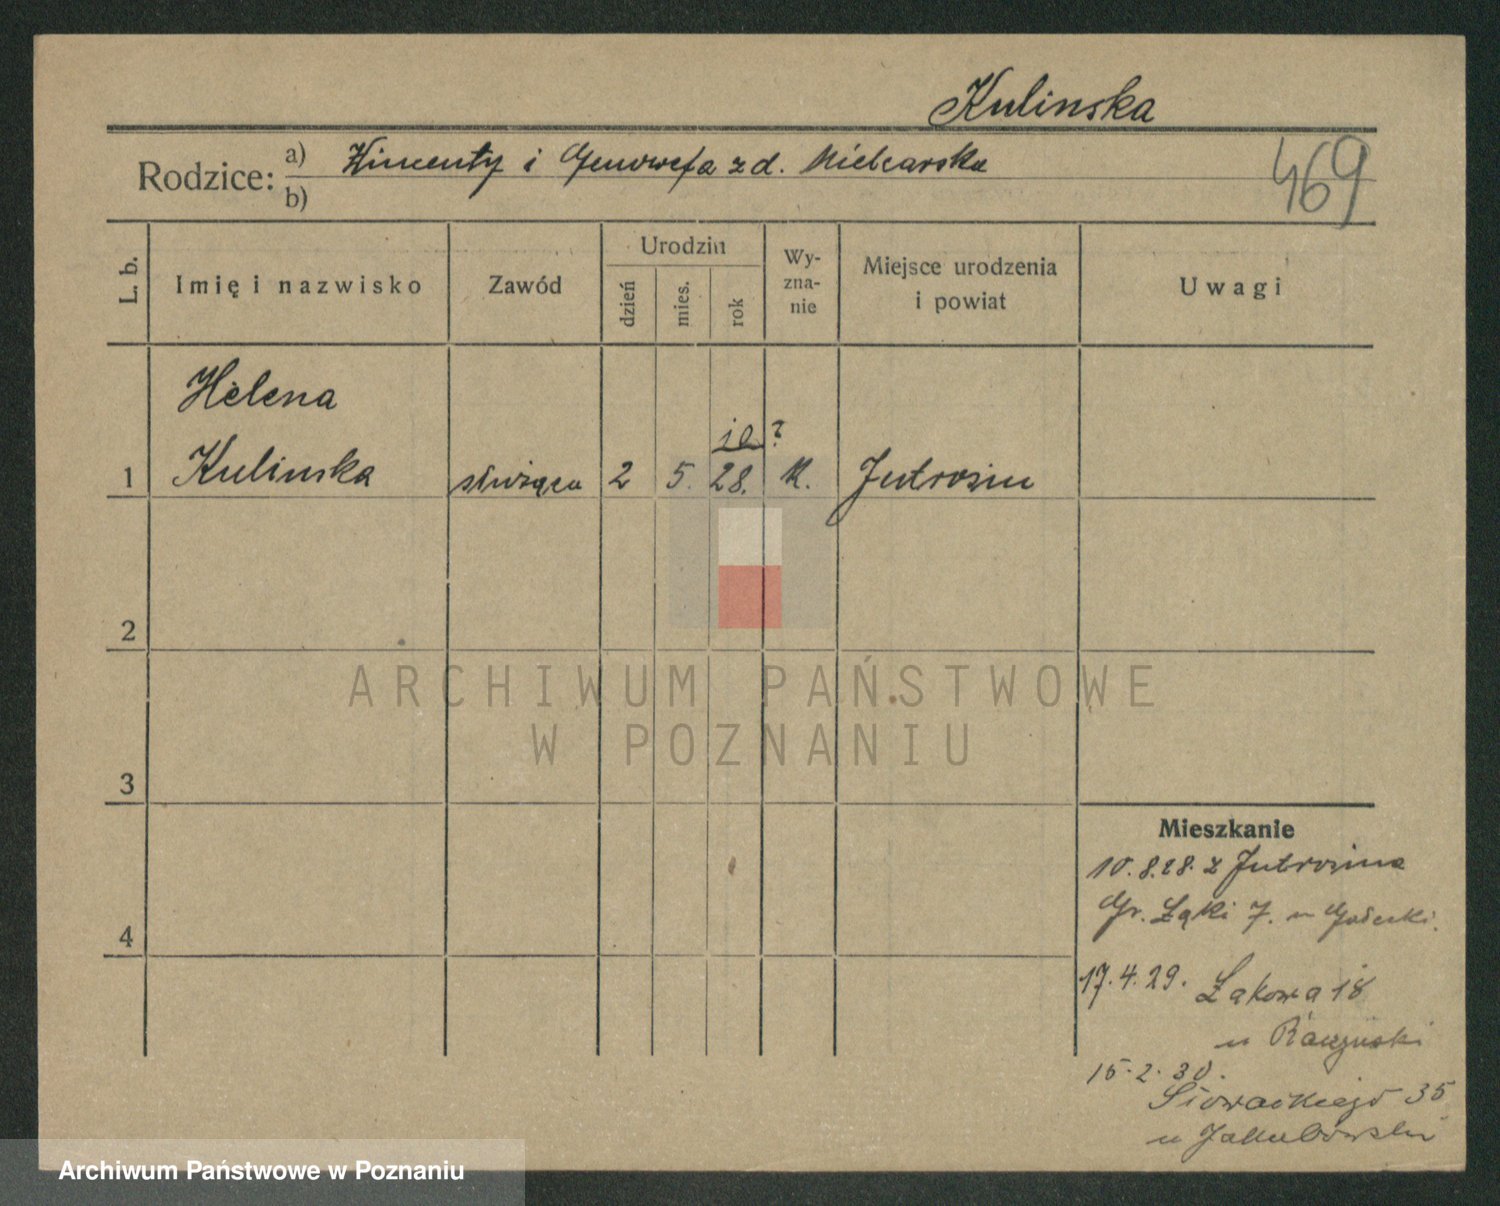 Kulinska
Rodzice: a) Wincenty i Genowefa z d. Mielcarska
b)
469
L. b.
Imię i nazwisko
Zawód
Urodzin
dzień
mies.
rok
Wy-
zna-
nie
Miejsce urodzenia
i powiat
Uwagi
Helena
10 ?
1 Kulinska służąca 2 5. 28. K. Jutrosin
2
3
4
Mieszkanie
10.8.28. z Jutrosina
Gr. Łąki 7. u
17.4.29. Łąkowa 18
u Raczyński
15.2.30.
Słowackiego 35
u Jakubowski
ARCHIWUM PAŃSTWOWE
W POZNANIU
Archiwum Państwowe w Poznaniu